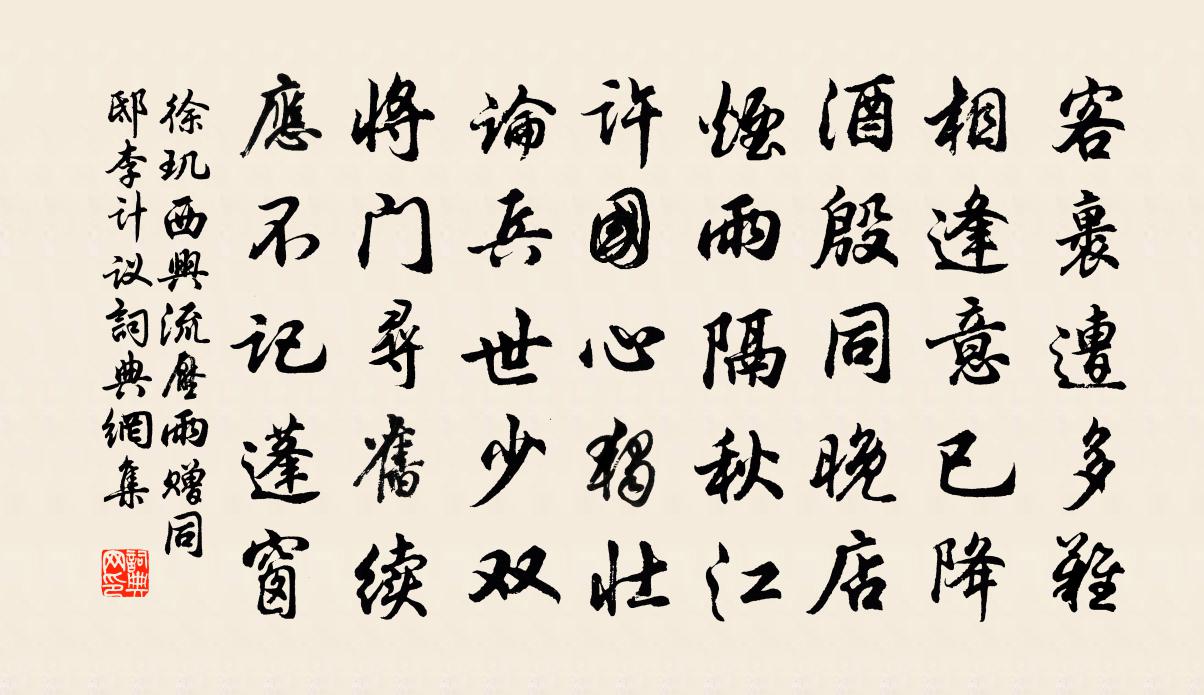 客裏遭多難
相逢意已降
酒殷同晚店
煙雨隔秋江
许國心獨壮
論兵世少双
将门尋舊续
應不记蓬窗
徐玑西興流雨赠同
邸李计议詞典網集
詞典
网印